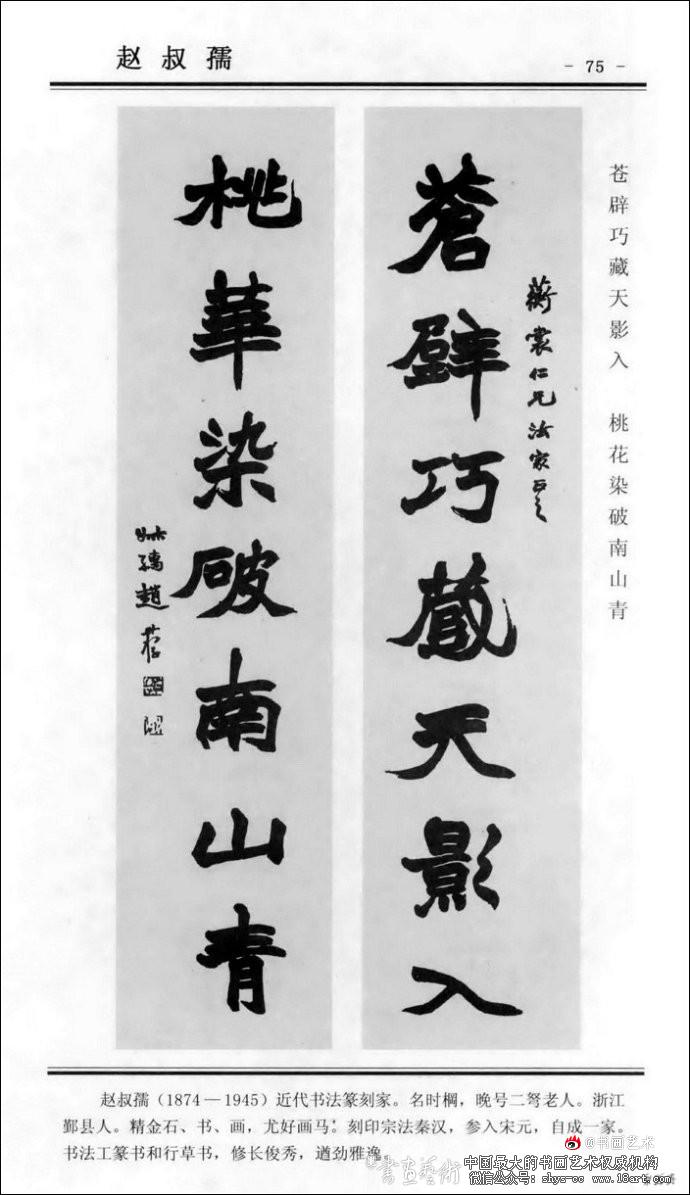 赵叔孺
- 75 -
苍辟巧藏天影入 桃花染破南山青
蒼壁巧藏天影入
蘅裳仁兄法家正之
桃華染破南山青
叔孺趙
赵叔孺（1874—1945）近代书法篆刻家。名时㭎，晚号二弩老人。浙江
鄞县人。精金石、书、画，尤好画马；刻印宗法秦汉，参入宋元，自成一家。
书法工篆书和行草书，修长俊秀，遒劲雅逸。
@书画艺术
書画藝術
中国最大的书画艺术权威机构
微信公众号：shys-cc www.18art.cn